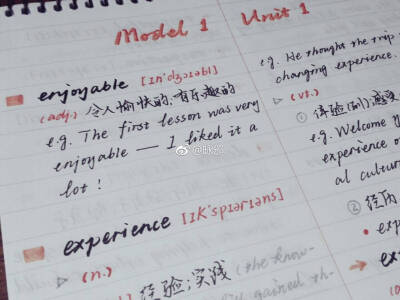 Model 1
enjoyable [ɪn'dʒɔɪəbl]
(adj.) 令人愉快的;有乐趣的
e.g. The first lesson was very
enjoyable — I liked it a
lot!
experience [ɪk'spɪərɪəns]
(n.)
经验;实践 (the know-
gained th-
Unit 1
e.g. He thought the trip
changing experience.
(vt.)
① 体验(到);感受
e.g. Welcome
experience
al cultur
② 经历